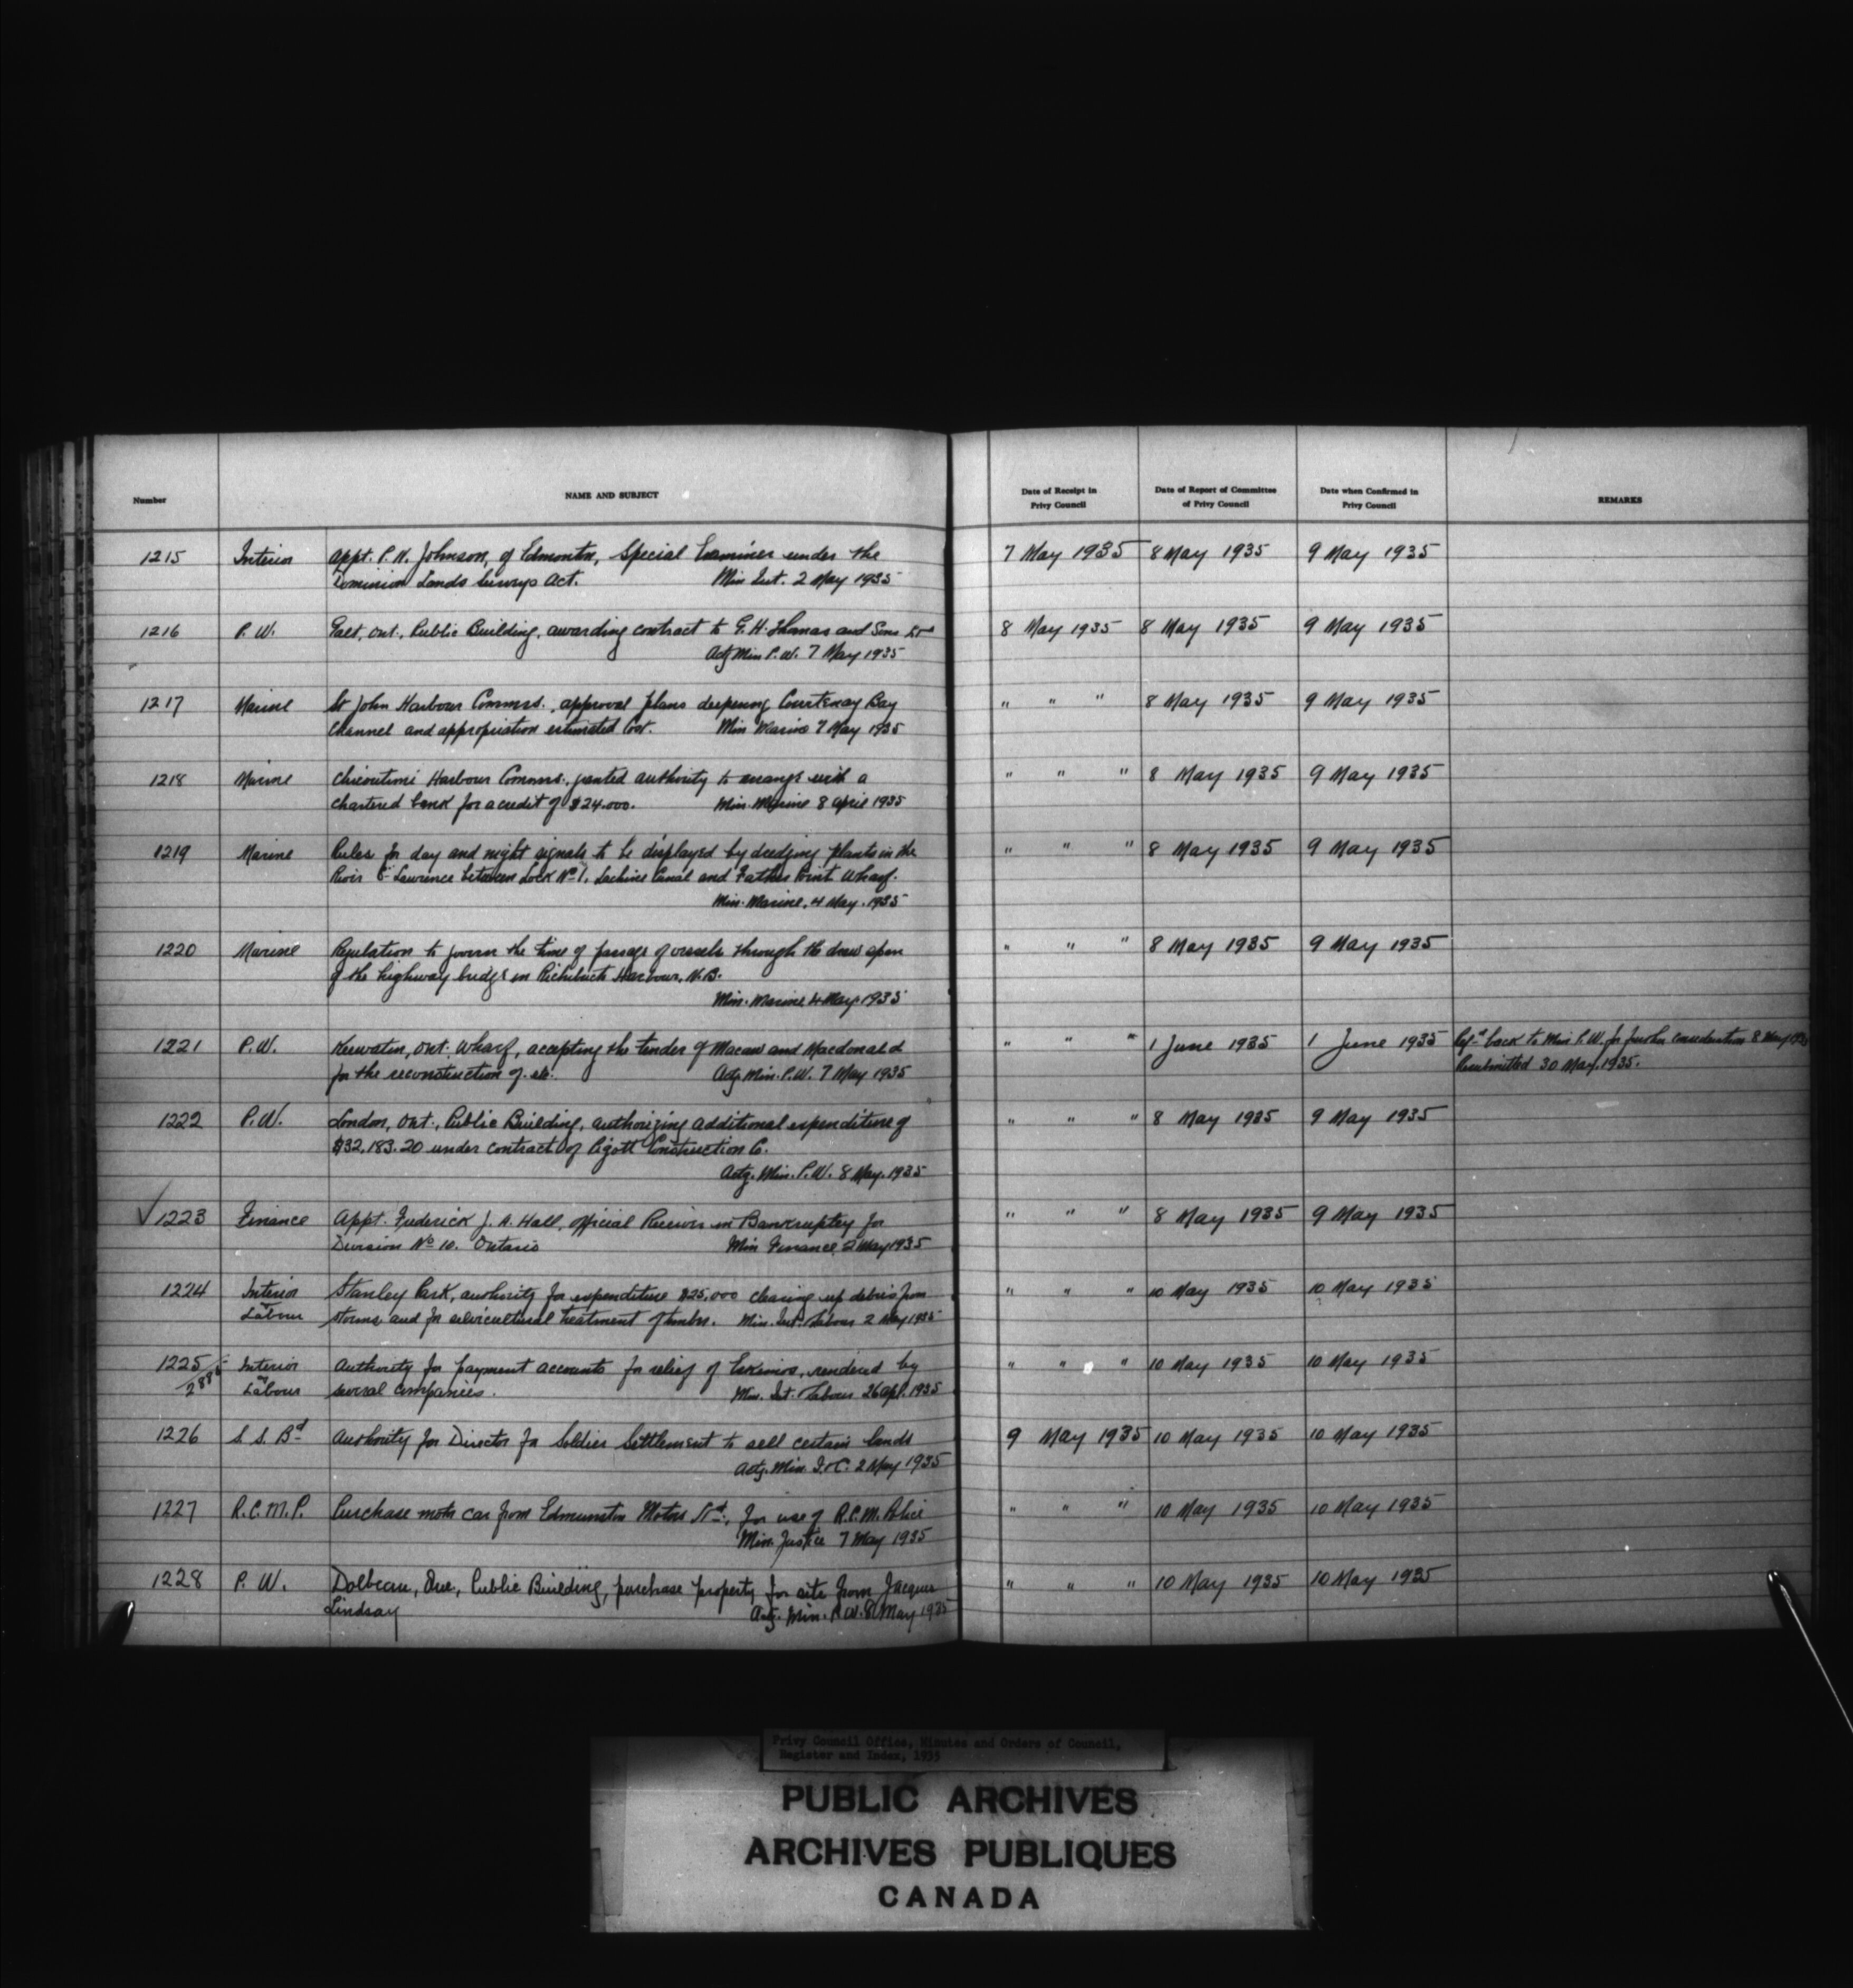 Number NAME AND SUBJECT Date of Receipt in Privy Council Date of Report of Committee of Privy Council Date when Confirmed in Privy Council REMARKS
1215 Interior Appt. P. N. Johnson, of Edmonton, Special Examiner under the 7 May 1935 8 May 1935 9 May 1935
Dominion Lands Surveys Act. Min. Int. 2 May 1935
1216 P. W. Galt, Ont., Public Building, awarding contract to G. H. Thomas and Sons Ltd 8 May 1935 8 May 1935 9 May 1935
Actg Min P. W. 7 May 1935
1217 Marine St John Harbour Commrs., approval plans deepening Courtenay Bay " " " 8 May 1935 9 May 1935
Channel and appropriation estimated Cost. Min Marine 7 May 1935
1218 Marine Chicoutimi Harbour Commrs., granted authority to arrange with a " " " 8 May 1935 9 May 1935
chartered bank for a credit of $24.000. Min. Marine 8 April 1935
1219 Marine Rules for day and night signals to be displayed by dredging plants in the " " " 8 May 1935 9 May 1935
River St Lawrence between Lock No 1. Lachine Canal and Father Point Wharf.
Min. Marine. 4 May. 1935
1220 Marine Regulation to govern the time of passage of vessels through the draw span " " " 8 May 1935 9 May 1935
of the highway bridge in Richibucto Harbour, N.B.
Min. Marine 4 May. 1935
1221 P.W. Keewatin, Ont. Wharf, accepting the tender of Macaw and Macdonald " " " 1 June 1935 1 June 1935 Refd back to Min P.W. for further consideration 8 May 1935
for the reconstruction of. etc. Actg. Min. P.W. 7 May 1935 Resubmitted 30 May. 1935.
1222 P.W. London, Ont., Public Building, authorizing additional expenditure of " " " 8 May 1935 9 May 1935
$32.183.20 under contract of Pigott Construction Co.
Actg. Min. P.W. 8 May. 1935
1223 Finance Appt. Frederick J. A. Hall, Official Receiver in Bankruptcy for " " " 8 May 1935 9 May 1935
Division No 10. Ontario Min Finance 2 May 1935
1224 Interior Stanley Park, authority for expenditure $25,000 clearing up debris from " " " 10 May 1935 10 May 1935
and Labour storms and for silvicultural treatment of timber. Min. Int. Labour 2 May 1935
1225 Interior Authority for payment accounts for relief of Eskimos, rendered by " " " 10 May 1935 10 May 1935
and Labour several companies. Min. Int. Labour 26 Apl. 1935
1226 S. S. Bd Authority for Director for Soldier Settlement to sell certain lands 9 May 1935 10 May 1935 10 May 1935
Actg. Min. I.&C. 2 May 1935
1227 R.C.M.P. Purchase motor car from Edmunston Motors Ltd., for use of R.C.M. Police " " " 10 May 1935 10 May 1935
Min. Justice 7 May 1935
1228 P. W. Dolbeau, Que., Public Building, purchase property for site from Jacques " " " 10 May 1935 10 May 1935
Lindsay Actg. Min. P.W. 8 May 1935
Privy Council Office, Minutes and Orders of Council,
Register and Index, 1935
PUBLIC ARCHIVES
ARCHIVES PUBLIQUES
CANADA